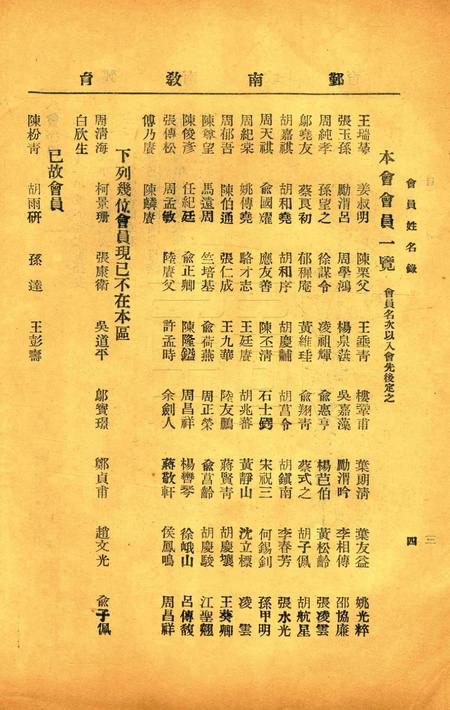 鄞南教育
會員姓名錄 四
本會會員一覽 會員名次以入會先後定之
王瑞棻 姜叔明 陳栗父 王乖青 樓鞏甫 葉朗清 葉友益 姚光粹
張玉孫 勵渭呂 周學鴻 楊泉蓀 吳嘉藻 勵渭吟 李相傳 邵協廉
周純孝 孫望之 徐謀令 凌祖輝 俞惠亨 楊芑伯 黃松齡 張凌雲
鄔堯友 蔡良初 郁穉庵 黃維珪 俞翔青 蔡式之 胡子佩 胡航星
胡嘉祺 胡和堯 胡和序 胡慶黼 胡菖令 胡鎮南 李春芳 張水光
周天祺 俞國燿 應友善 陳丕清 石士鍔 宋祝三 何錫釗 孫甲明
周紀棠 姚傳堯 駱才志 王廷賡 胡兆蕃 黃靜山 沈立標 凌雲
周郁吾 陳伯通 張仁成 王九華 陸友鵬 蔣賢青 胡慶壤 王葵卿
陳尊望 馬遠周 竺培基 俞荷燕 周正榮 俞菖齡 胡慶駿 江聖翹
陳俊彥 任紀廷 俞正卿 陳隆鎰 周昌祥 楊琴 徐峨山 呂傳馥
張傳松 周孟敏 陸賡父 許孟時 余劍人 蔣敬軒 侯鳳鳴 周昌祥
傅乃賡 陳麟賡
下列幾位會員現已不在本區
周清海 柯景珊 張康衛 吳道平 鄔寶璟 鄭貞甫 趙文光 俞子佩
白欣生
已故會員
陳枌青 胡雨研 孫達 王彭壽